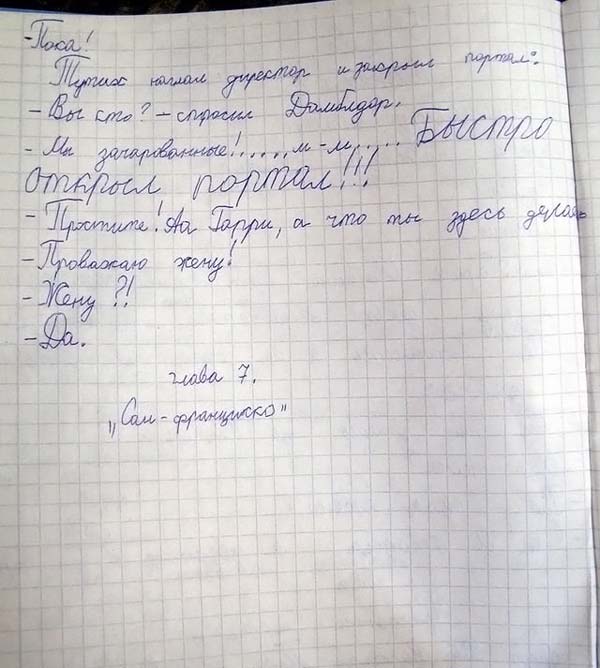 -Пока!
Тут их нагнал директор и закрыл портал:
- Вы кто? - спросил Дамблдор.
- Мы зачарованные!....,м-м,.... Быстро
открыл портал!!!
- Простите! Аа Гарри, а что ты здесь делаешь
- Проважаю жену!
- Жену?!
- Да.
глава 7.
„Сан-франциско"